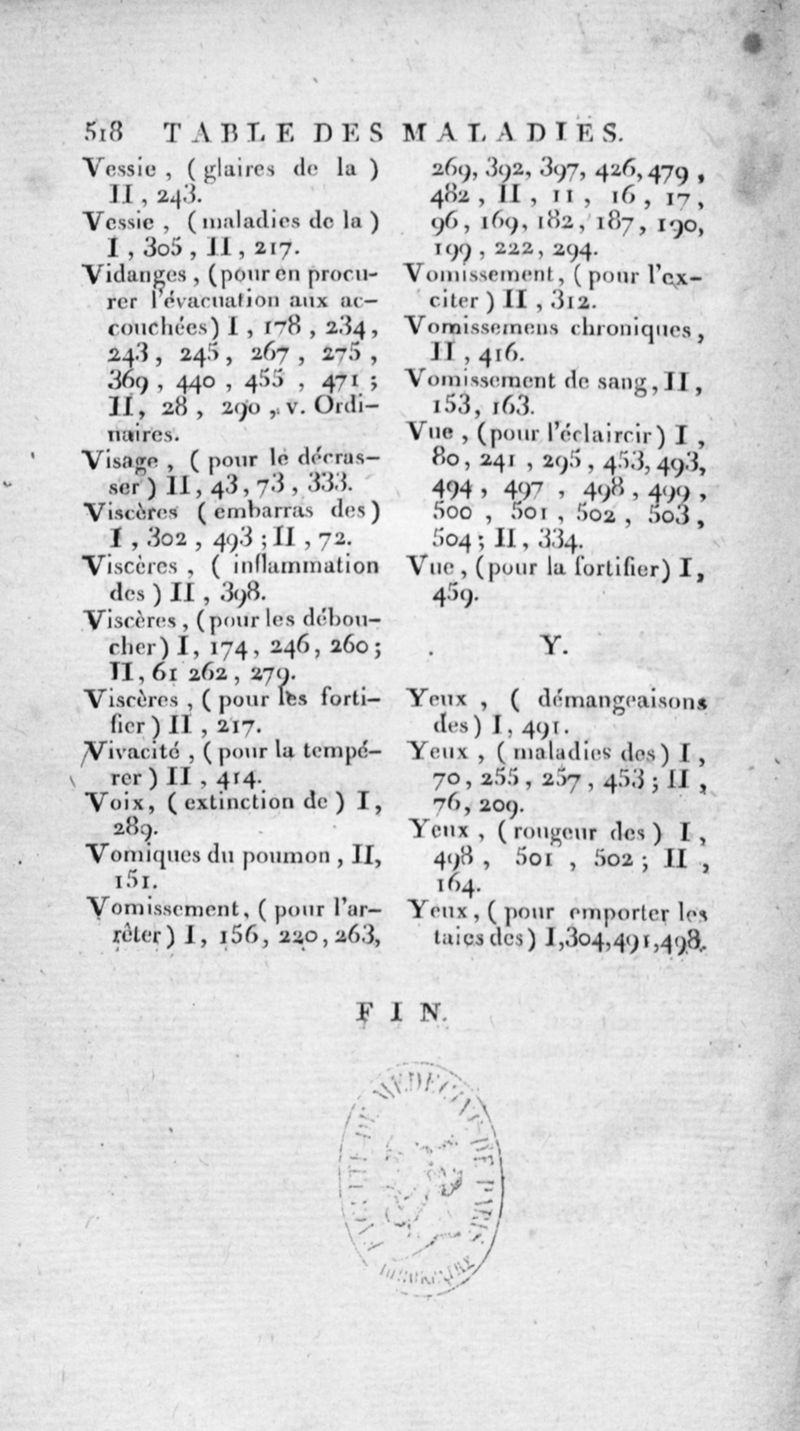 518 TABLE DES MALADIES.
Vessie , ( glaires de la )
II , 243.
Vessie , ( maladies de la )
I , 305 , II , 217.
Vidanges , (pour en procu-
rer l'évacuation aux ac-
couchées) I , 178 , 234 ,
243 , 245 , 267 , 275 ,
369 , 440 , 455 , 471 ;
II , 28 , 290 , v. Ordi-
naires.
Visage , ( pour le décras-
ser ) II , 43 , 73 , 333.
Viscères ( embarras des)
I , 302 , 493 ; II , 72.
Viscères , ( inflammation
des ) II , 398.
Viscères , (pour les débou-
cher) I, 174, 246, 260 ;
II, 61 262 , 279.
Viscères , ( pour les forti-
fier ) II , 217.
Vivacité , ( pour la tempé-
rer ) II , 414.
Voix, ( extinction de ) I,
289.
Vomiques du poumon , II,
151.
Vomissement, ( pour l'ar-
rêter) I, 156, 220, 263,
269, 392, 397, 426, 479 ,
482 , II , 11 , 16 , 17 ,
96, 169, 182, 187, 190,
199 , 222, 294.
Vomissement, ( pour l'ex-
citer ) II , 312.
Vomissemens chroniques ,
II , 416.
Vomissement de sang, II ,
153, 163.
Vue , (pour l'éclaircir) I ,
80, 241 , 295 , 453, 493,
494 , 497 , 498 , 499 ,
500 , 501 , 502 , 503 ,
504 ; II, 334.
Vue , (pour la fortifier) I,
459.
Y.
Yeux , ( démangeaisons
des) I, 491.
Yeux , ( maladies des) I ,
70, 255 , 257 , 453 ; II ,
76, 209.
Yeux , ( rougeur des ) I ,
498 , 501 , 502 ; II ,
164.
Yeux , ( pour emporter les
taies des) I,304,491,498.
FIN.
FACULTÉ DE MEDECINE DE PARIS